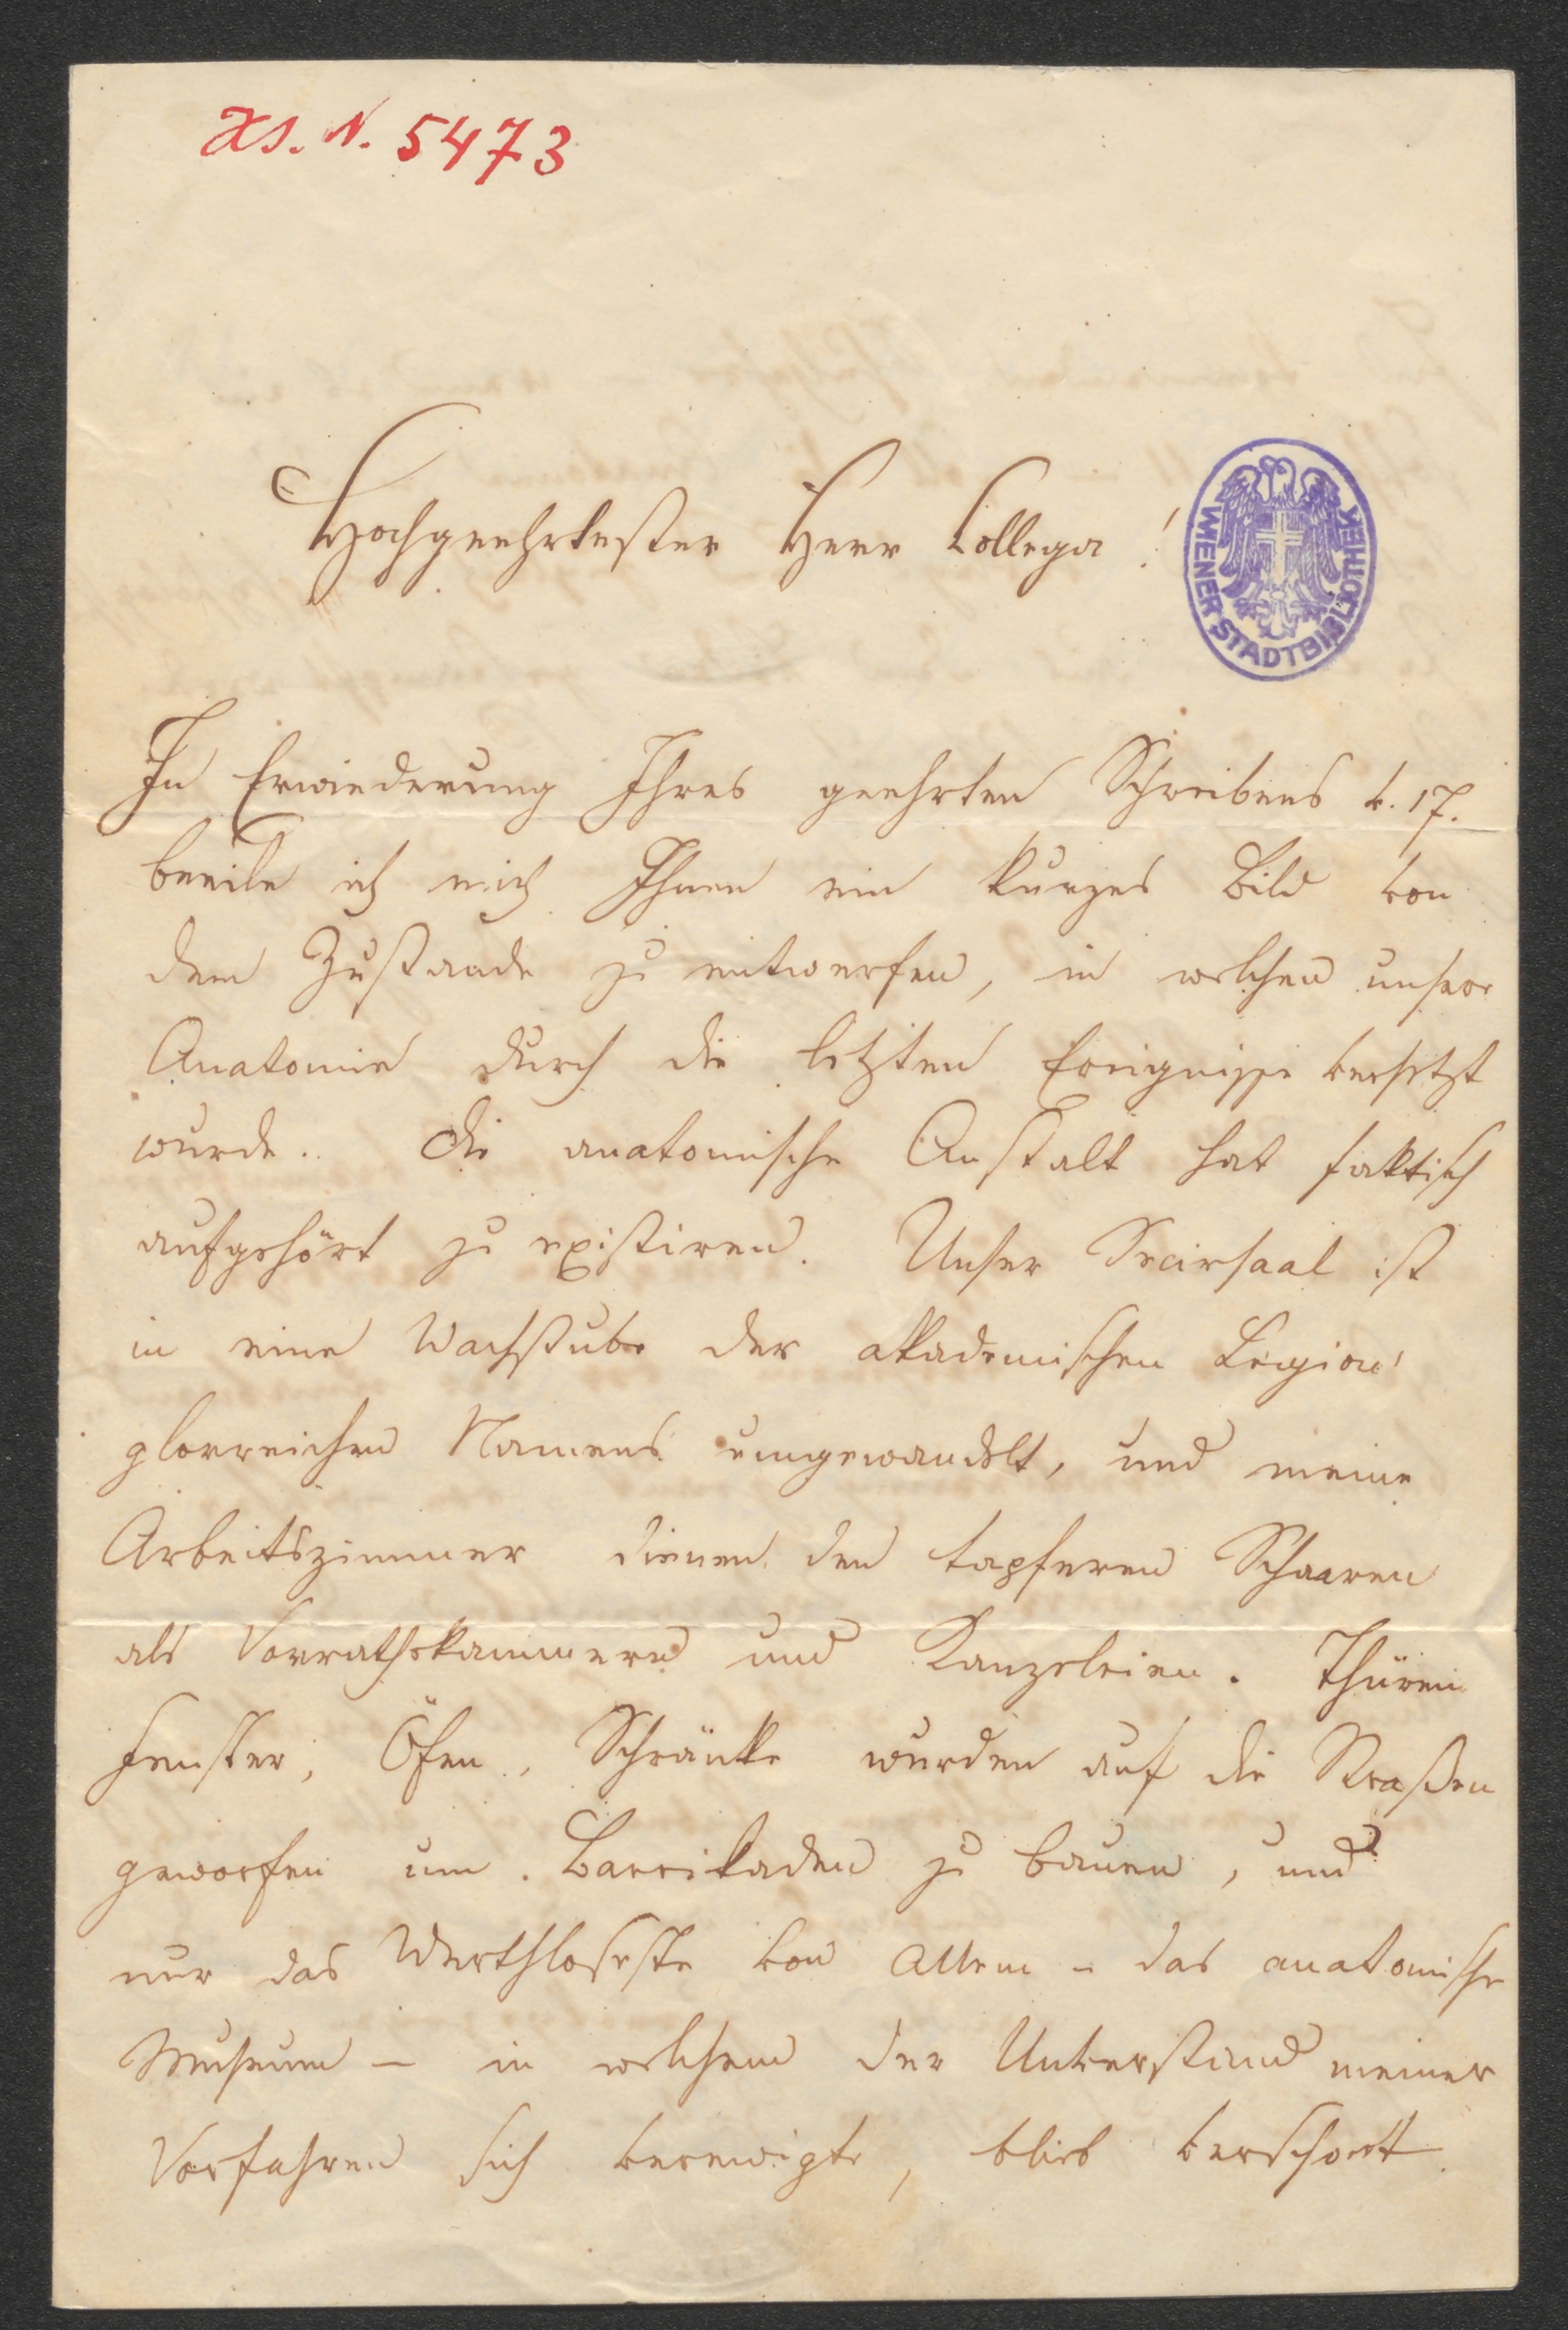 H.I.N. 5473
Hochgeehrtester Herr Collega!
WIENER STADTBIBLIOTHEK
In Erwiederung Ihres geehrten Schreibens v. 17.
beeile ich mich Ihnen ein kurzes Bild von
dem Zustande zu entwerfen, in welchen unsere
Anatomie durch die letzten Ereignisse versetzt
wurde. Die anatomische Anstalt hat faktisch
aufgehört zu existiren. Unser Secirsaal ist
in eine Wachstube der akademischen Legion
glorreichen Namens umgewandelt, und meine
Arbeitszimmer dienen den tapferen Schaaren
als Vorrathskammern und Kanzeleien. Thüren
Fenster, Öfen, Schränke wurden auf die Straßen
geworfen um Barrikaden zu bauen, und
nur das Werthloseste von Allem – das anatomische
Museum – in welchem der Unverstand meiner
Vorfahren sich verewigte, blieb verschont.